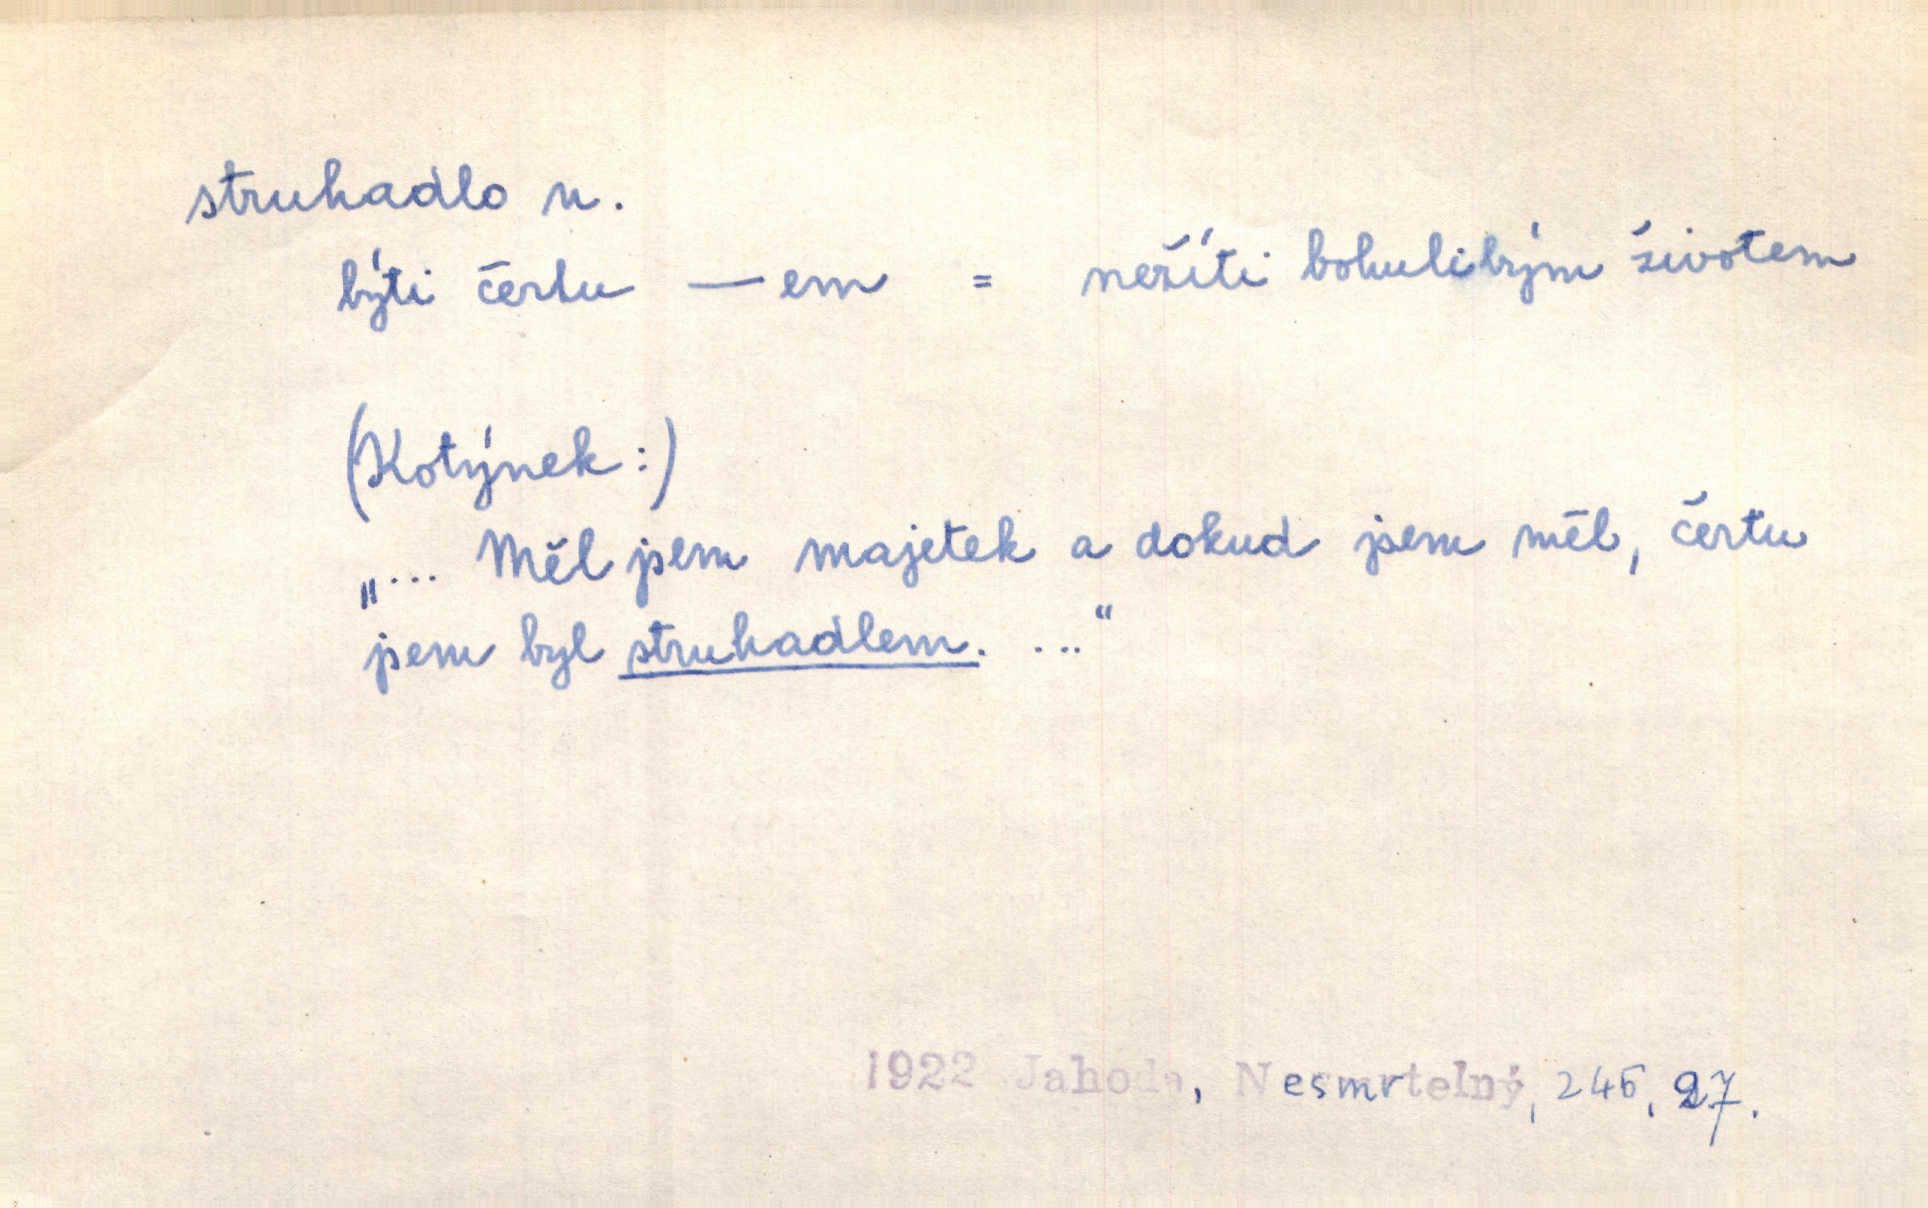 struhadlo n.
býti čertu — em = nežíti bohulibým životem
(Kotýnek:)
„... Měl jsem majetek a dokud jsem měl, čertu
jsem byl struhadlem. ...“
1922 Jahoda, Nesmrtelný, 245, 27.